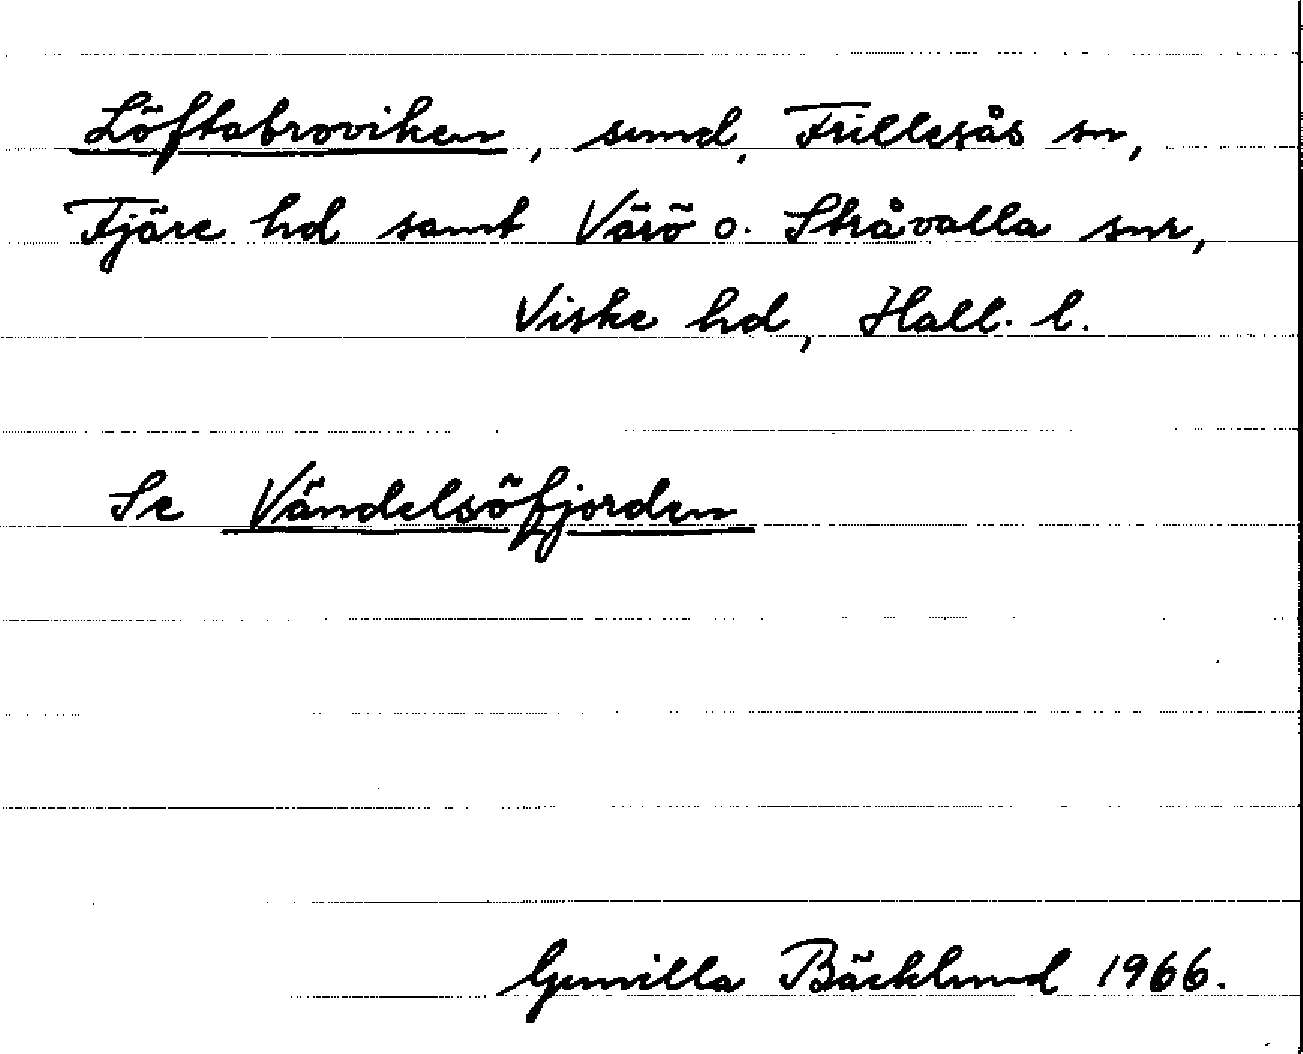 Löftabroviken, sund, Frillesås sn,
Fjäre hd samt Värö o. Stråvalla snr,
Viske hd, Hall. l.
Se Vändelsöfjorden
Gunilla Bäcklund 1966.